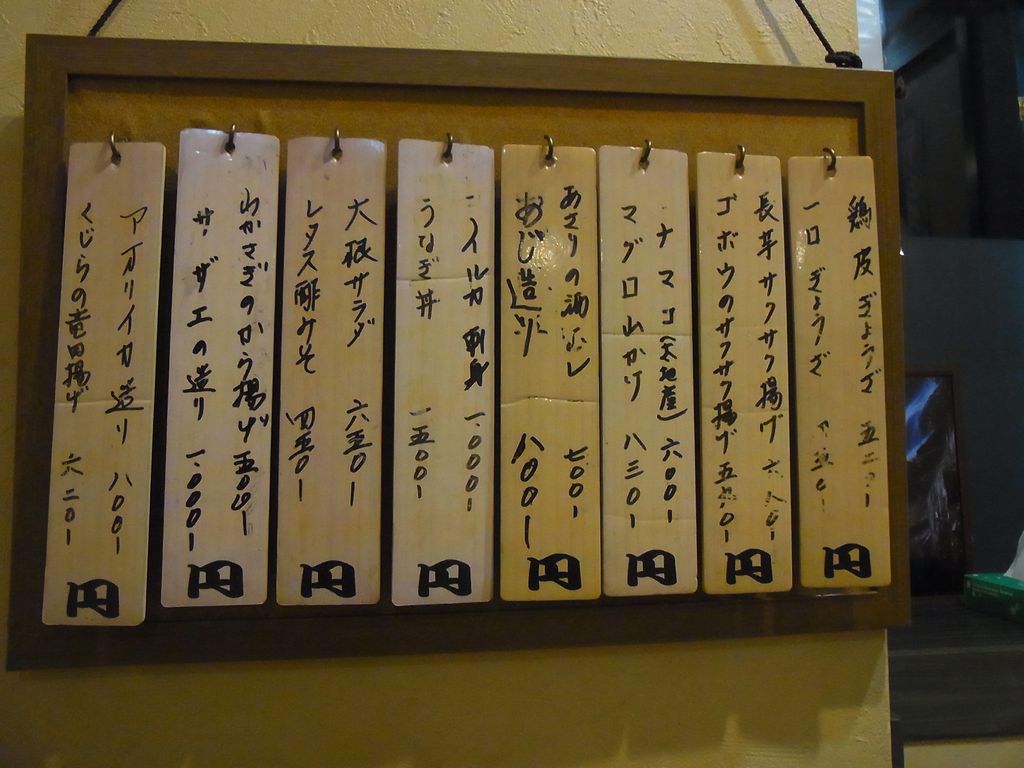 鶏皮ぎょうざ 五二〇ー
一口ぎょうざ
円
長芋サクサク揚げ 六八〇ー
ゴボウのサクサク揚げ 五
円
ナマコ(太地産) 六〇〇ー
マグロ山かけ 八三〇ー
円
あさりの酒蒸し 七〇〇ー
あじ造り 八〇〇ー
円
イルカ刺身 一、〇〇〇ー
うなぎ丼 一五〇〇ー
円
大根サラダ 六五〇ー
レタス酢みそ 四五〇ー
円
わかさぎのから揚げ 五〇〇ー
サザエの造り 一、〇〇〇ー
円
アオリイカ造り 八〇〇ー
くじらの竜田揚げ 六二〇ー
円